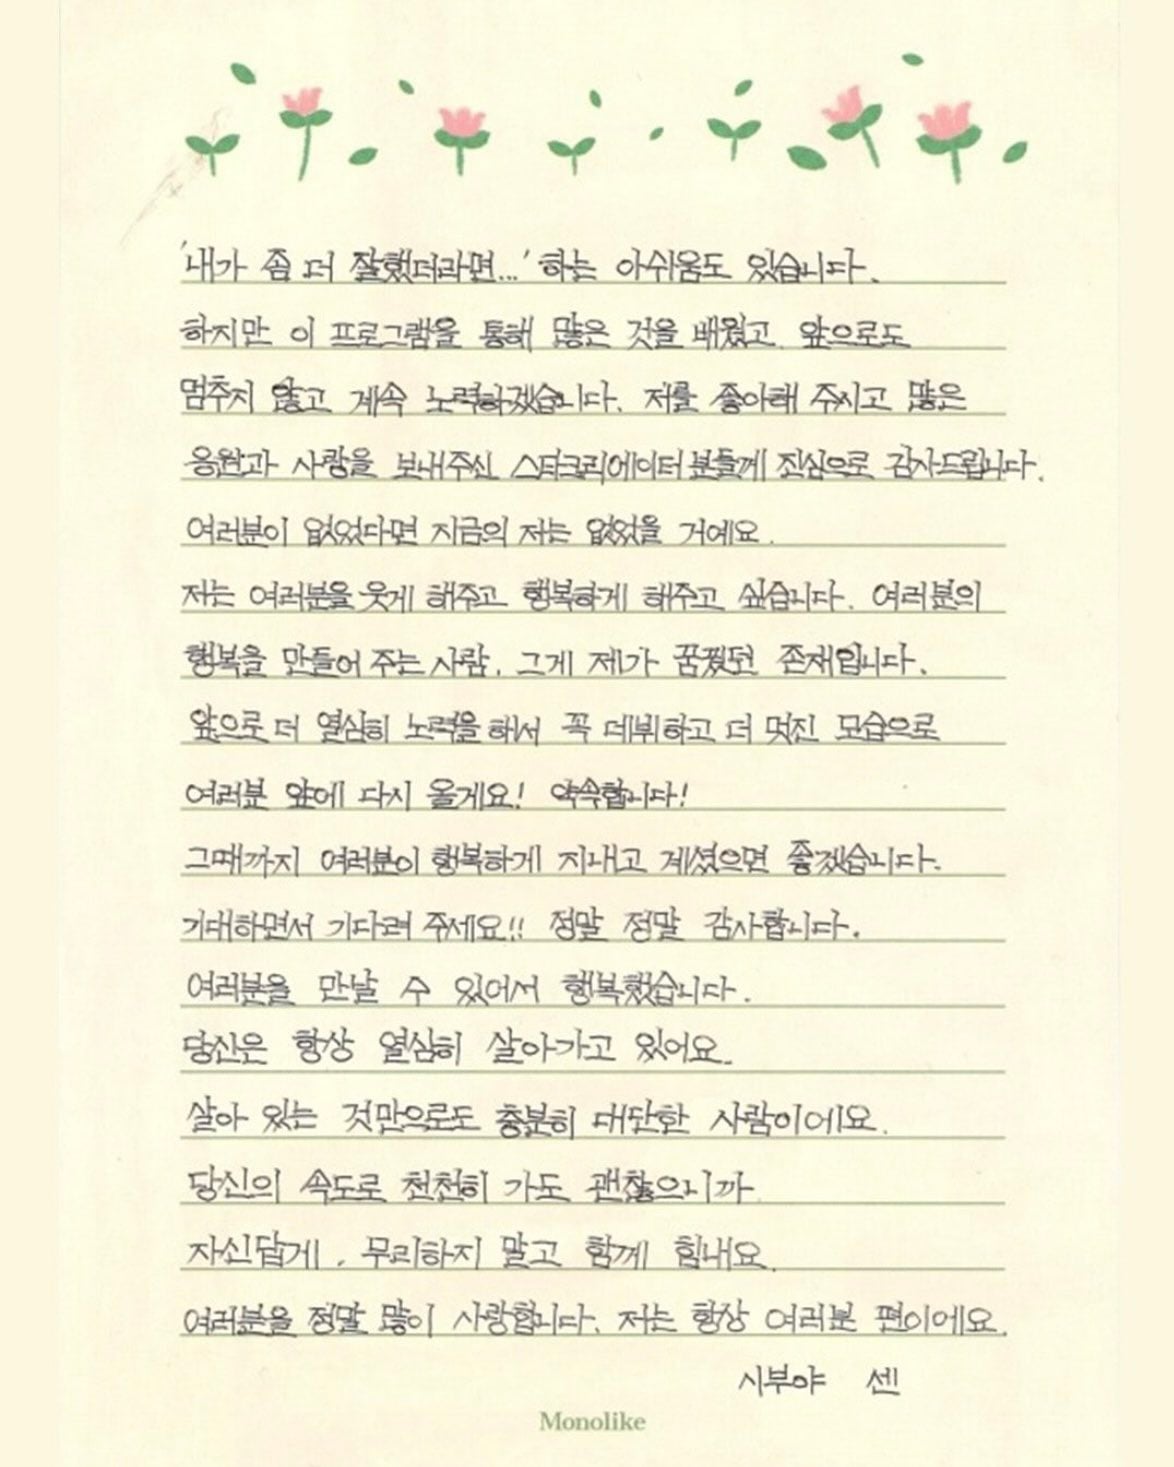 '내가 좀 더 잘했더라면...' 하는 아쉬움도 있습니다.
하지만 이 프로그램을 통해 많은 것을 배웠고, 앞으로도
멈추지 않고 계속 노력하겠습니다. 저를 좋아해 주시고 많은
응원과 사랑을 보내주신 스타크리에이터분들께 진심으로 감사드립니다.
여러분이 없었다면 지금의 저는 없었을 거예요.
저는 여러분을 웃게 해주고 행복하게 해주고 싶습니다. 여러분의
행복을 만들어 주는 사람, 그게 제가 꿈꿨던 존재입니다.
앞으로 더 열심히 노력을 해서 꼭 데뷔하고 더 멋진 모습으로
여러분 앞에 다시 올게요! 약속합니다!
그때까지 여러분이 행복하게 지내고 계셨으면 좋겠습니다.
기대하면서 기다려 주세요!! 정말 정말 감사합니다.
여러분을 만날 수 있어서 행복했습니다.
당신은 항상 열심히 살아가고 있어요.
살아 있는 것만으로도 충분히 대단한 사람이에요.
당신의 속도로 천천히 가도 괜찮으니까
자신답게, 무리하지 말고 함께 힘내요.
여러분을 정말 많이 사랑합니다. 저는 항상 여러분 편이에요.
시부야 센
Monolike